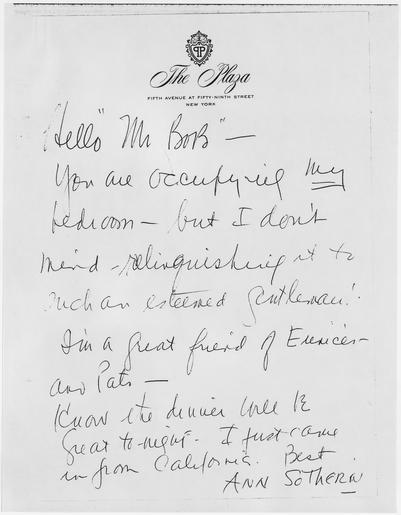 The Plaza
FIFTH AVENUE AT FIFTY-NINTH STREET
NEW YORK
Hello "Mr Bob" —
You are occupying my
bedroom — but I don't
mind - relinquishing it to
such an esteemed gentleman!
I'm a great friend of Eunice's -
and Pat's —
Know the dinner will be
great to-night - I just came
in from California. Best
ANN SOTHERN